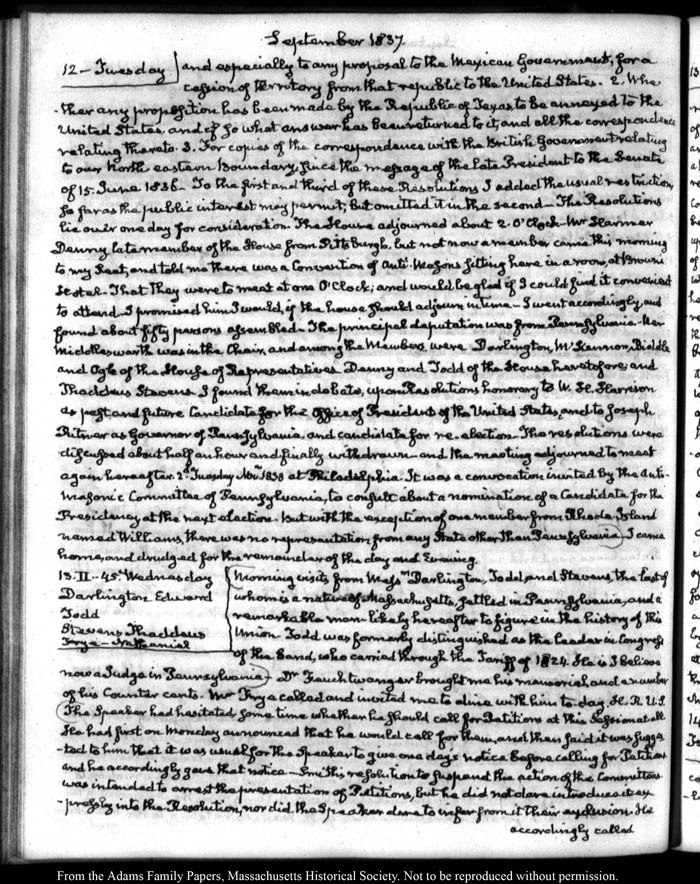 September 1837.
12 - Tuesday and especially to any proposal to the Mexican Government, for a
cession of territory from that republic to the United States. 2. Whe
-ther any proposition has been made by the Republic of Texas to be annexed to the
United States, and if so what answer has been returned to it, and all the correspondence
relating thereto. 3. For copies of the correspondence with the British Government relating
to our North eastern Boundary, since the message of the late President to the Senate
of 15. June 1836. To the first and third of these Resolutions I added the usual restriction
so far as the public interest may permit, but omitted it in the second - The Resolutions
lie over one day for consideration. The House adjourned about 2. O'Clock. Mr Harmar
Denny late member of the House from Pittsburgh, but not now a member came this morning
to my Seat, and told me there was a Convention of Anti-Masons sitting here in a room, at Brown's
Hotel. That they were to meet at one O'Clock; and would be glad if I could find it convenient
to attend. I promised him I would, if the house should adjourn in time - I went accordingly, and
found about fifty persons assembled - The principal deputation was from Pennsylvania. Ner
Middleswarth was in the Chair, and among the Members, were Darlington, McKennon, Biddle
and Ogle of the House of Representatives Denny and Todd of the House heretofore; and
Thaddeus Stevens. I found them in debate, upon Resolutions honorary to W. H. Harrison
as past and future Candidate for the Office of President of the United States, and to Joseph
Ritner as Governor of Pennsylvania and candidate for re-election. The resolutions were
discussed about half an hour and finally withdrawn - and the meeting adjourned to meet
again hereafter 2d Tuesday Novr 1838 at Philadelphia. It was a convocation invited by the Anti-
Masonic Committee of Pennsylvania, to consult about a nomination of a Candidate for the
Presidency at the next election. But with the exception of one member from Rhode Island
named Williams, there was no representation from any State other than Pennsylvania. I came
home, and drudged for the remainder of the day and Evening.
13. II. 45. Wednesday Morning visits from Messrs Darlington, Todd, and Stevens, the last of
Darlington Edward whom is a native of Massachusetts, settled in Pennsylvania, and a
Todd remarkable man likely hereafter to figure in the history of this
Stevens Thaddeus Union. Todd was formerly distinguished as the leader in Congress
Frye - Nathaniel of the band, who carried through the Tariff of 1824. He is I believe
now a Judge in Pennsylvania - Dr Feuchtwanger brought me his memorial, and a number
of his Counter cents. Mr Frye called and invited me to dine with him to-day. H. R. U.S.
The Speaker had hesitated some time whether he should call for Petitions at this Session at all.
He had first on Monday announced that he would call for them, and then said it was sugges
-ted to him that it was usual for the Speaker to give one day's notice before calling for Petitions
and he accordingly gave that notice - the resolution to suspend the action of the Committees
was intended to arrest the presentation of Petitions, but he did not dare introduce it ex
-pressly into the Resolution, nor did the Speaker dare to infer from it their exclusion. He
accordingly called
From the Adams Family Papers, Massachusetts Historical Society. Not to be reproduced without permission.